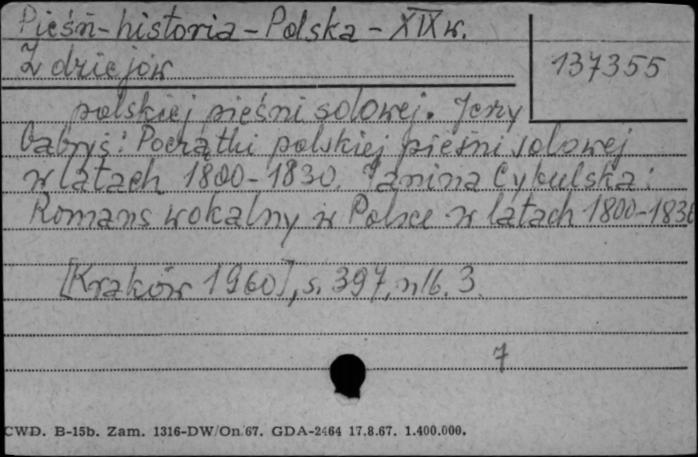 Pieśń - historia - Polska - XIX w.
Z dziejów
137355
polskiej pieśni solowej. Jerzy
Gabryś: Początki polskiej pieśni solowej
w latach 1800-1830. Janina Cybulska:
Romans wokalny w Polsce w latach 1800-1830
[Kraków 1960], s. 397, nlb. 3.
7
CWD. B-15b. Zam. 1316-DW/On/67. GDA-2464 17.8.67. 1.400.000.